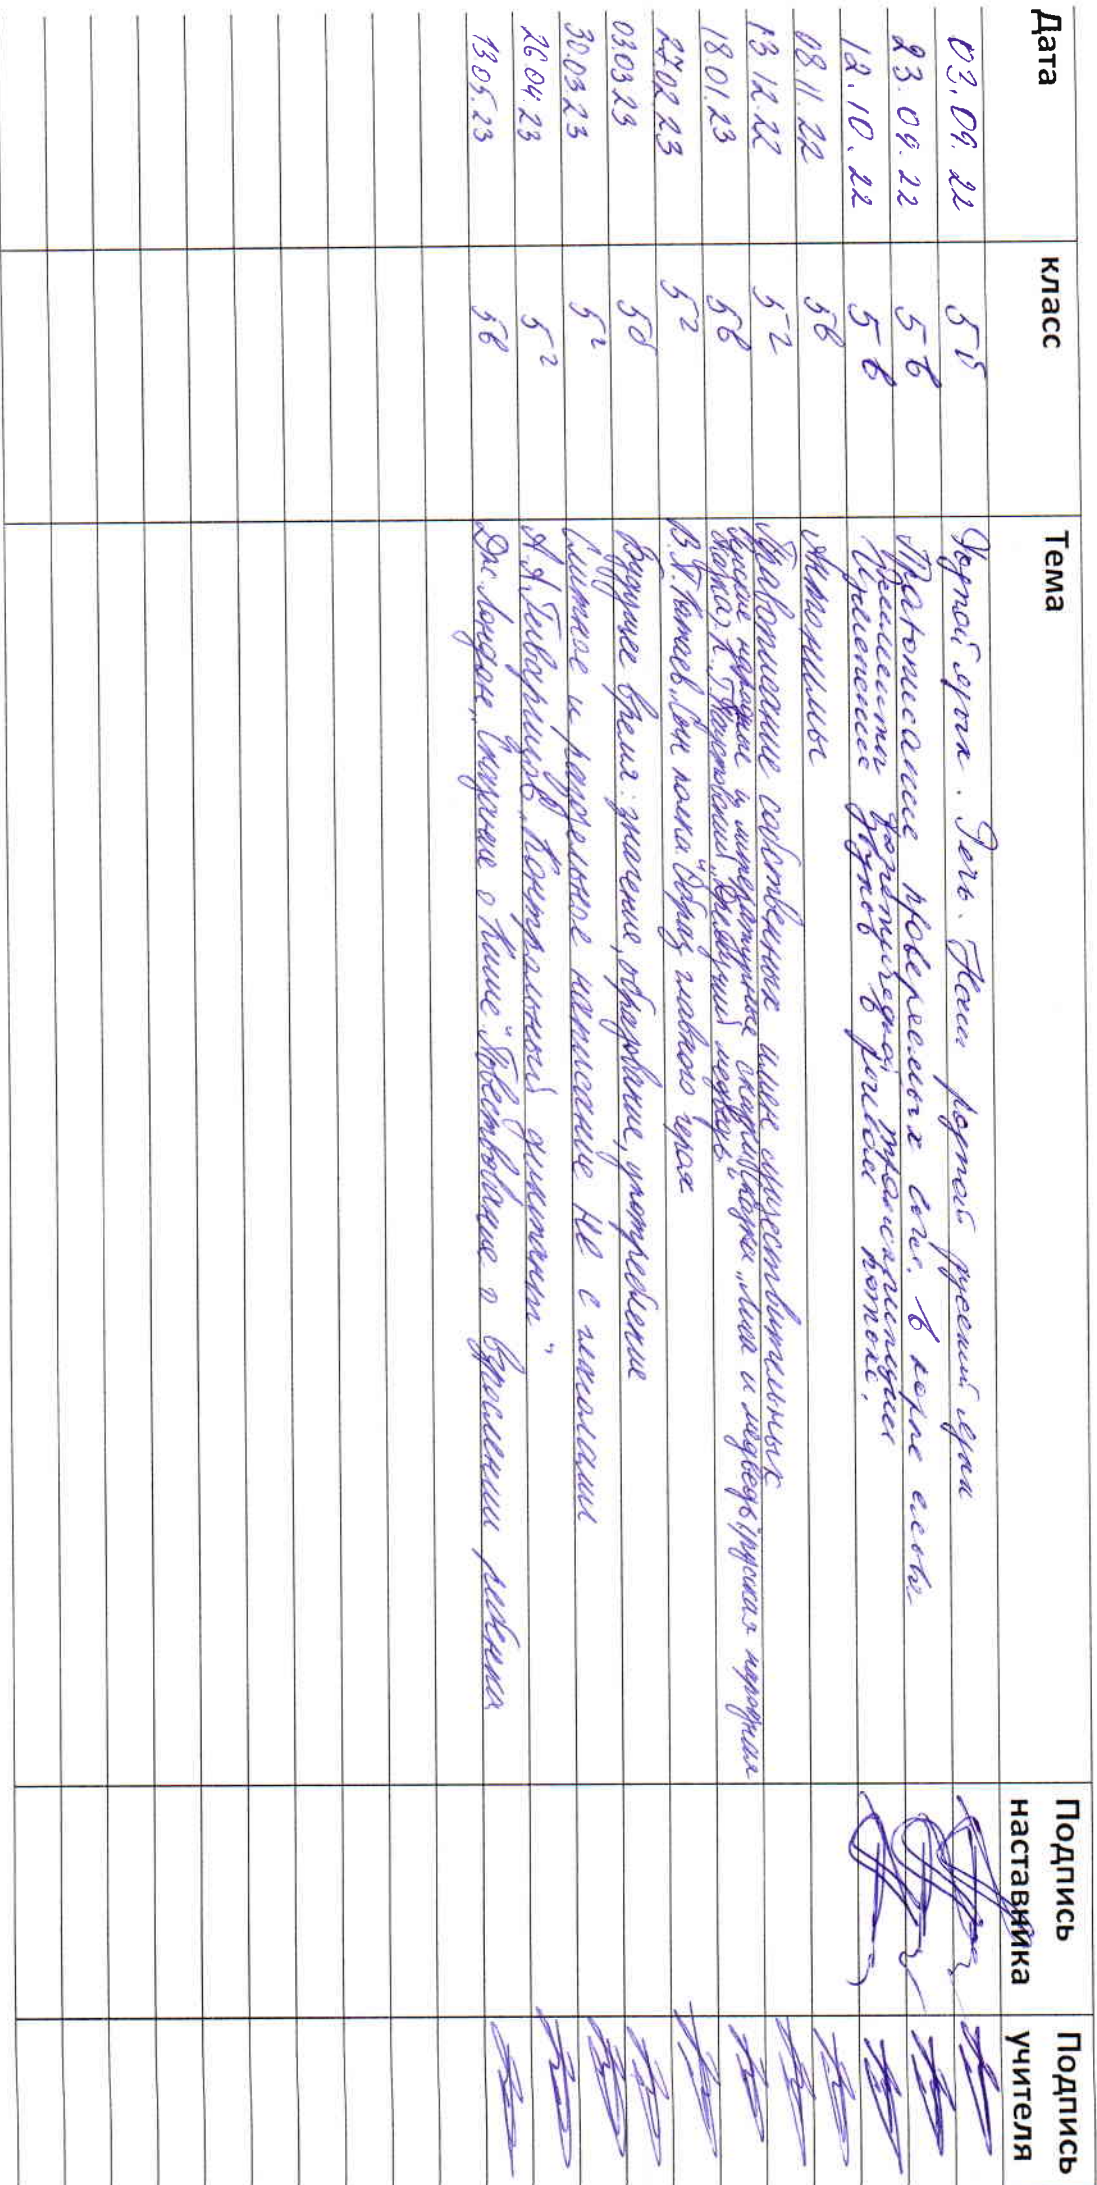 Дата класс Тема Подпись наставника Подпись учителя
03.09.22 5б Родной язык. Речь. Наш родной русский язык
23.09.22 5в Правописание проверяемых согл. в корне слова.
12.10.22 5в Элементы фонетической транскрипции
Изменение звуков в речевом потоке.
08.11.22 5в Антонимы
13.12.22 5г Правописание собственных имен существительных
18.01.23 5в Русские народные и литературные сказки (сказка „Лиса и медведь", русская народная
сказка), К.Г. Паустовский „Дремучий медведь"
27.02.23 5г В.П. Катаев „Сын полка". Образ главного героя
03.03.23 5б Будущее время: значение, образование, употребление
30.03.23 5г Слитное и раздельное написание не с глаголами
26.04.23 5г А.А. Гиваргизов „Контрольный диктант"
13.05.23 5в Дж. Лондон „Сказание о Кише". Повествование о взрослении ребенка